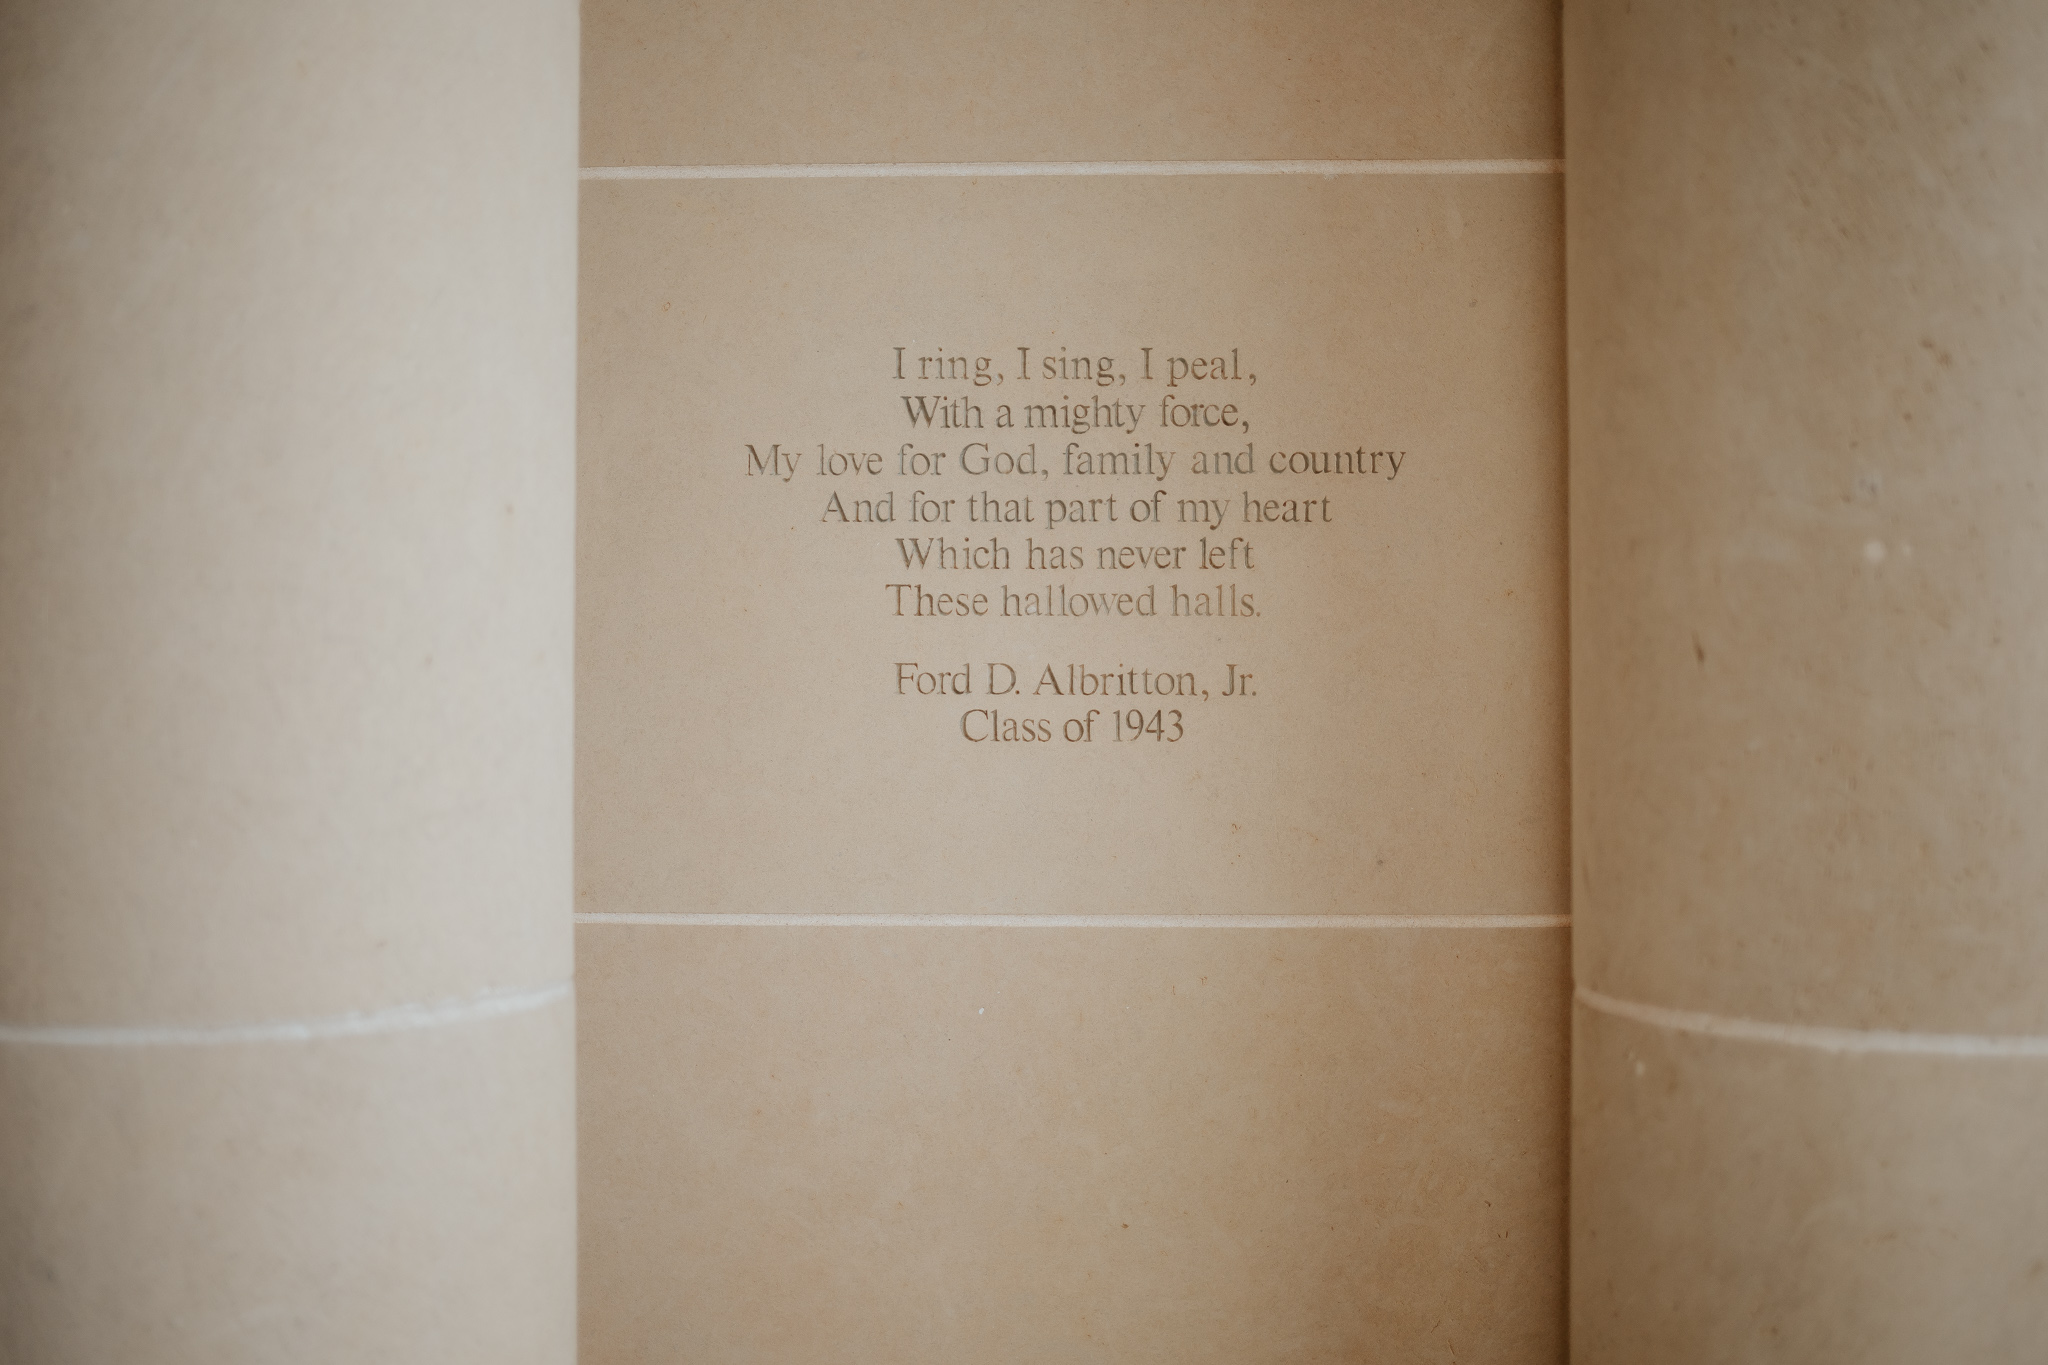 I ring, I sing, I peal,
With a mighty force,
My love for God, family and country
And for that part of my heart
Which has never left
These hallowed halls.
Ford D. Albritton, Jr.
Class of 1943